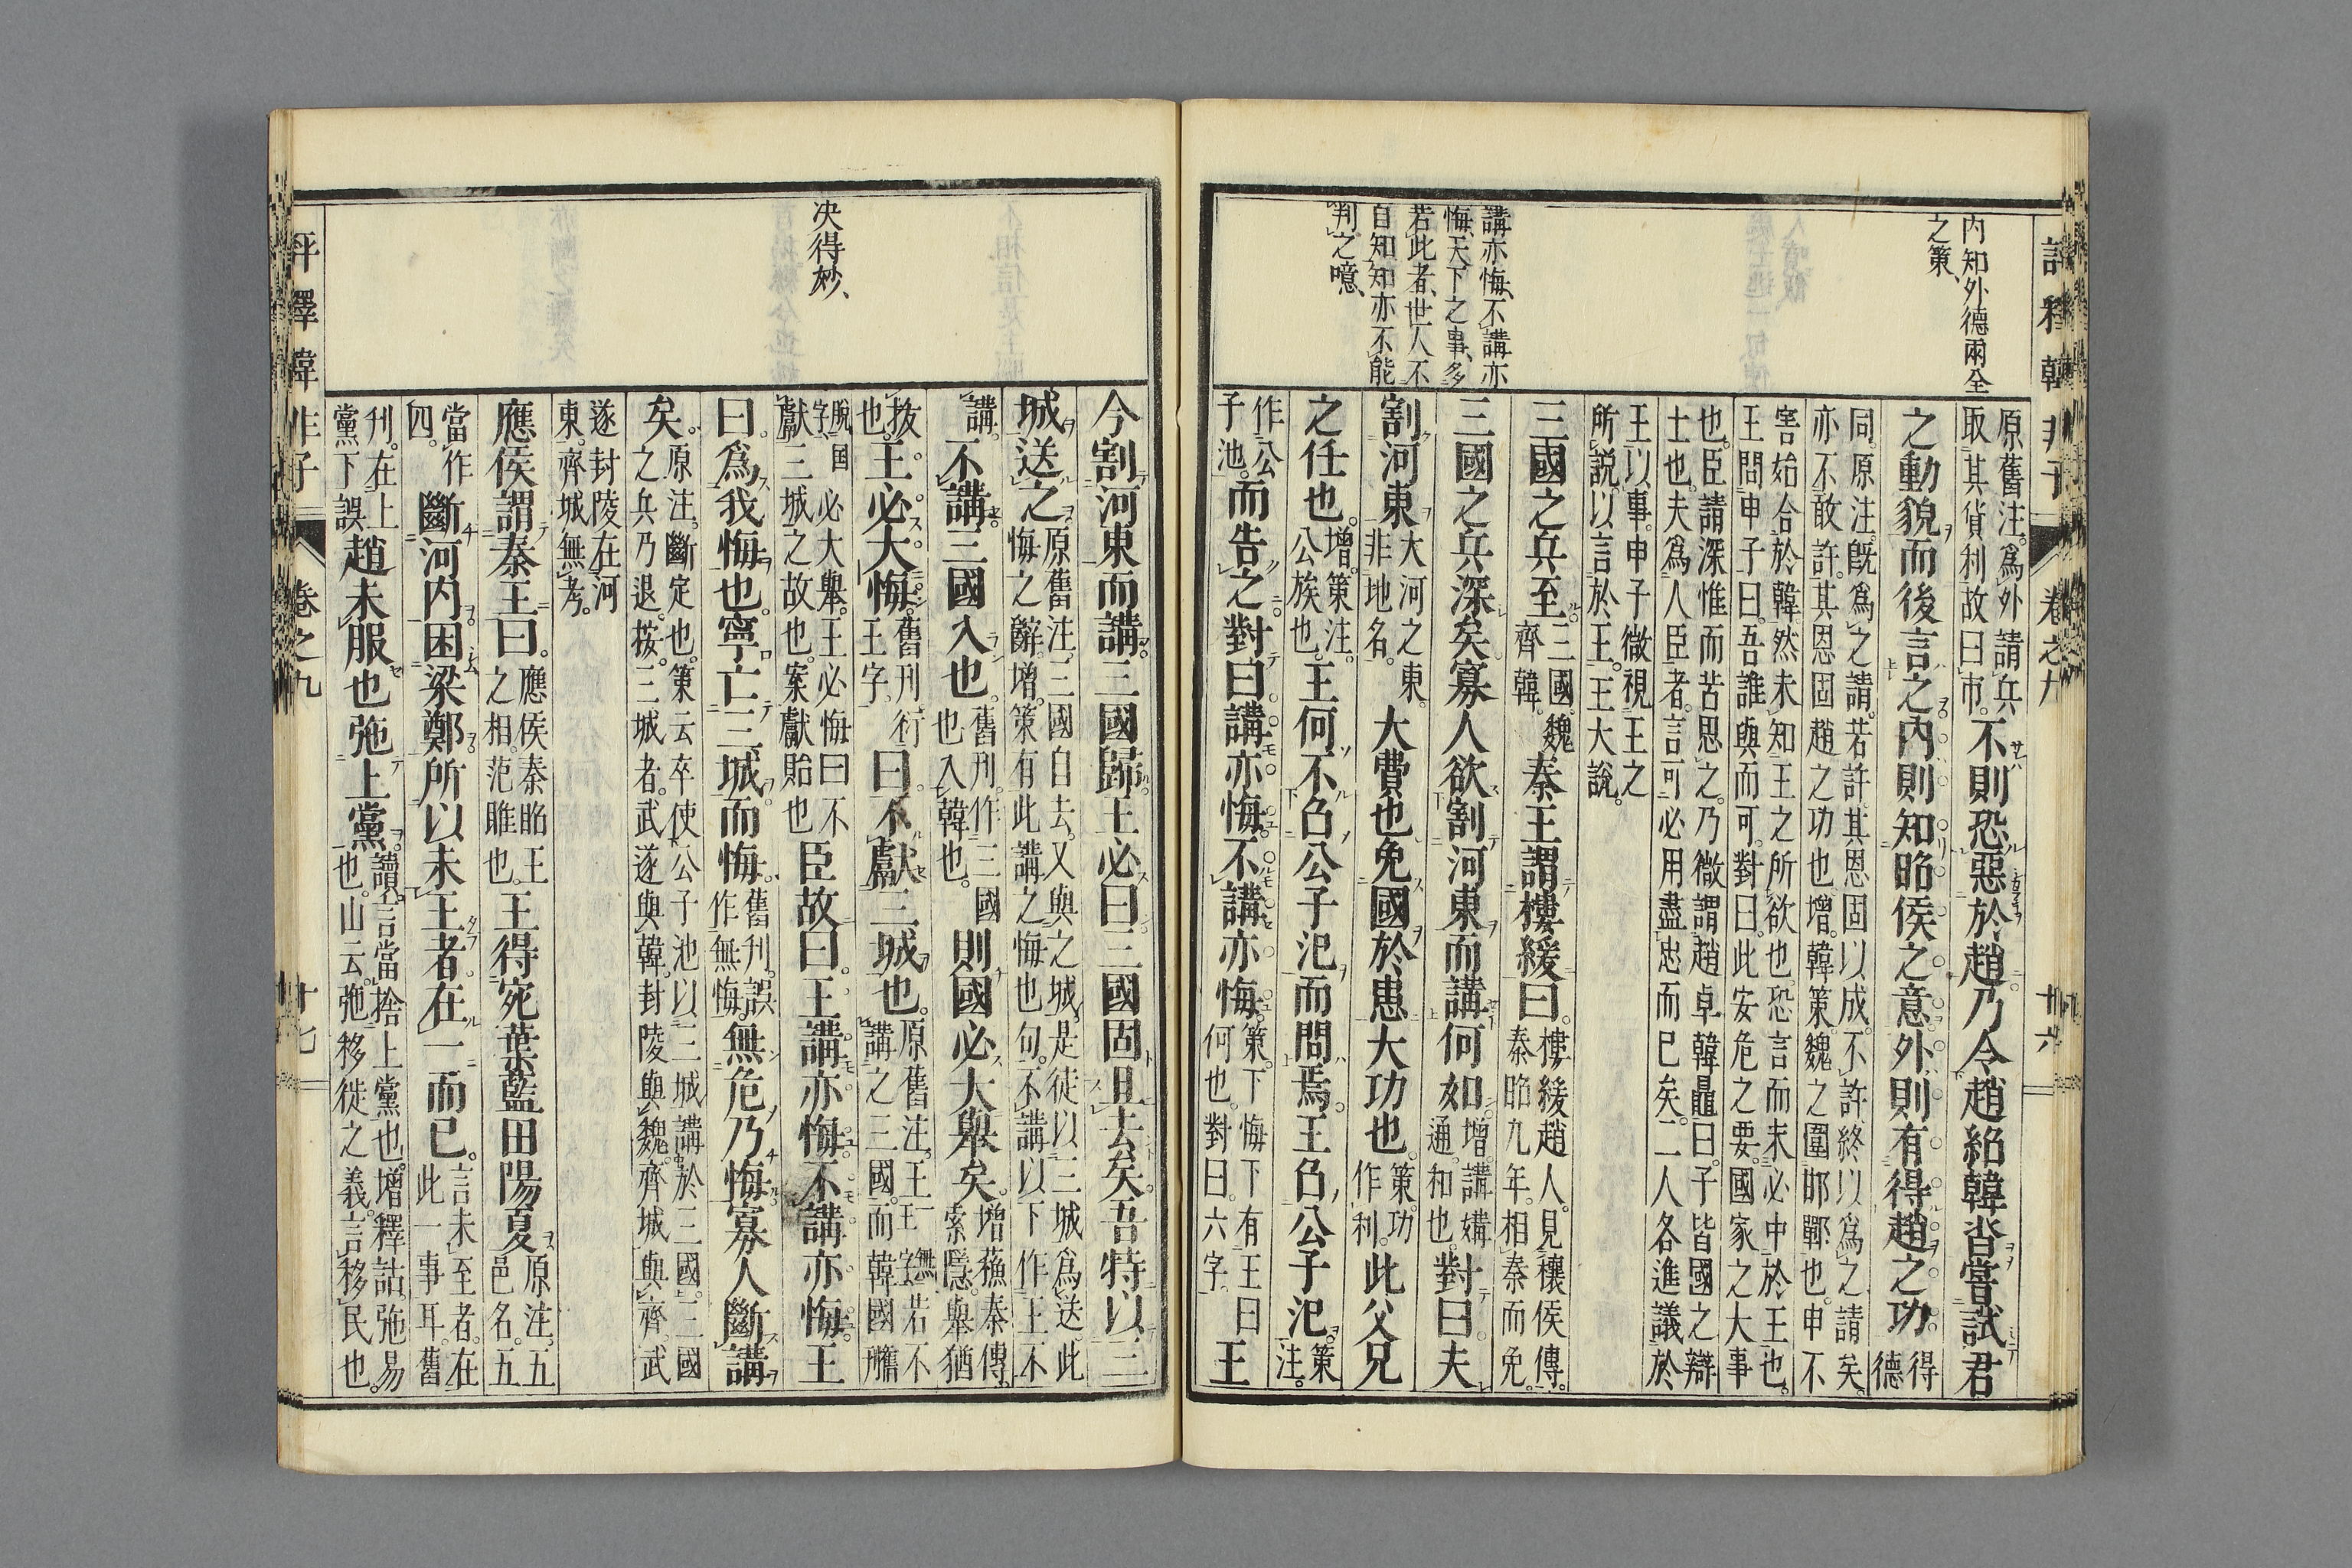 內知外德兩全
之策、
講亦悔、不講亦
悔、天下之事、多
若此者、世人不
自知、知亦不能
判之噫、
原舊注。爲外請兵
取其貨利故曰市。
不則恐惡於趙乃令趙紹韓沓嘗試君
之動貌而後言之內則知昭侯之意外則有得趙之功
得
德
同。原注。旣爲之請。若許其恩固以成。不許終以爲之請矣。
亦不敢許。其恩固趙之功也。增。韓策。魏之圍邯鄲也。申不
害始合於韓。然未知王之所欲也。恐言而未必中於王也。
王問申子曰。吾誰與而可。對曰。此安危之要。國家之大事
也。臣請深惟而苦思之。乃微謂趙卓韓鼂曰。子皆國之辯
士也。夫爲人臣者。言可必用。盡忠而已矣。二人各進議於
王以事。申子微視王之
所說。以言於王。王大說。
三國之兵至。
三國。魏
齊韓。
秦王謂樓緩曰。
樓緩趙人。見穰侯傳。
秦昭九年。相秦而免。
三國之兵深矣寡人欲割河東而講何如。
增。講媾
通。和也。
對曰夫
割河東
大河之東。
非地名。
大費也免國於患大功也。
策。功
作利。
此父兄
之任也。
增。策注。
公族也。
王何不召公子汜而問焉。王召公子汜。
策
注。
作公
子池。
而告之對曰。講亦悔不講亦悔。
策。下悔下有王曰
何也。對曰。六字。
王
評釋韓非子 卷之九 廿六
今割河東而講。三國歸王必曰三國固且去矣。吾特以三
城送之
原舊注。三國自去。又與之城。是徒以三城爲送。此
悔之辭。增。策有此講之悔也句。不講以下作王不
講。
不講三國入也。
舊刊。作三國
也入韓也。
則國必大舉矣。
增。蘇秦傳。
索隱。舉猶
拔
也。
王必大悔。
舊刊行
王字。
曰不獻三城也。
原舊注。王王字無若不
講之三國。而韓國舊
脫国
字、
必大舉。王必悔曰不
獻三城之故也。案獻貽也
臣故曰。王講亦悔不講亦悔。王
曰。爲我悔也。寧亡三城而悔。
舊刊。誤
作無悔。
無危乃悔寡人斷講
矣。
原注。斷定也。策云卒使公子池以三城講於三國。三國
之兵乃退。按。三城者。武遂與韓。封陵與魏。齊城與齊。武
遂封陵在河
東。齊城無考。
應侯謂秦王曰。
應侯秦昭王
之相。范雎也。
王得宛葉藍田陽夏
原注。五
邑名。五
當作
四。
斷河內困梁鄭所以未王者。在一而已。
言未至者。在
此一事耳。舊
刊。在上
黨下誤
趙未服也弛上黨。
讀。言當捨上黨也。增。釋詁。弛易
也。山云。弛移徙之義。言移民也。
決得妙、
評釋韓非子 卷之九 廿七